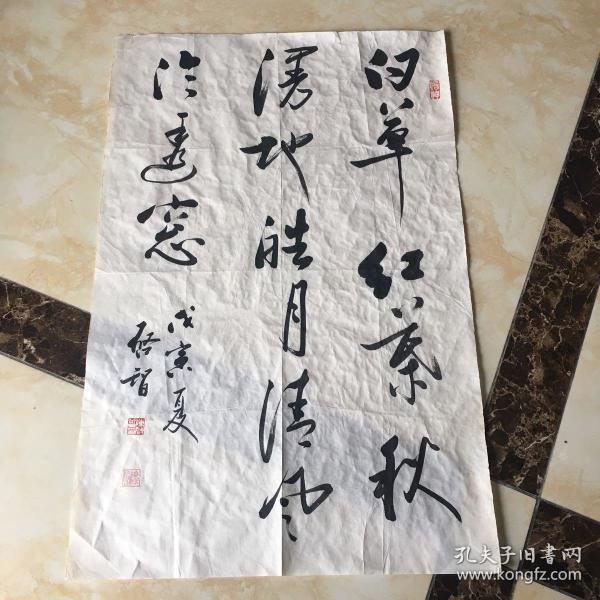 白草红叶秋
满地皓月清风
冷透窓
戊寅夏
啓智
孔夫子旧書网
www.kongfz.com